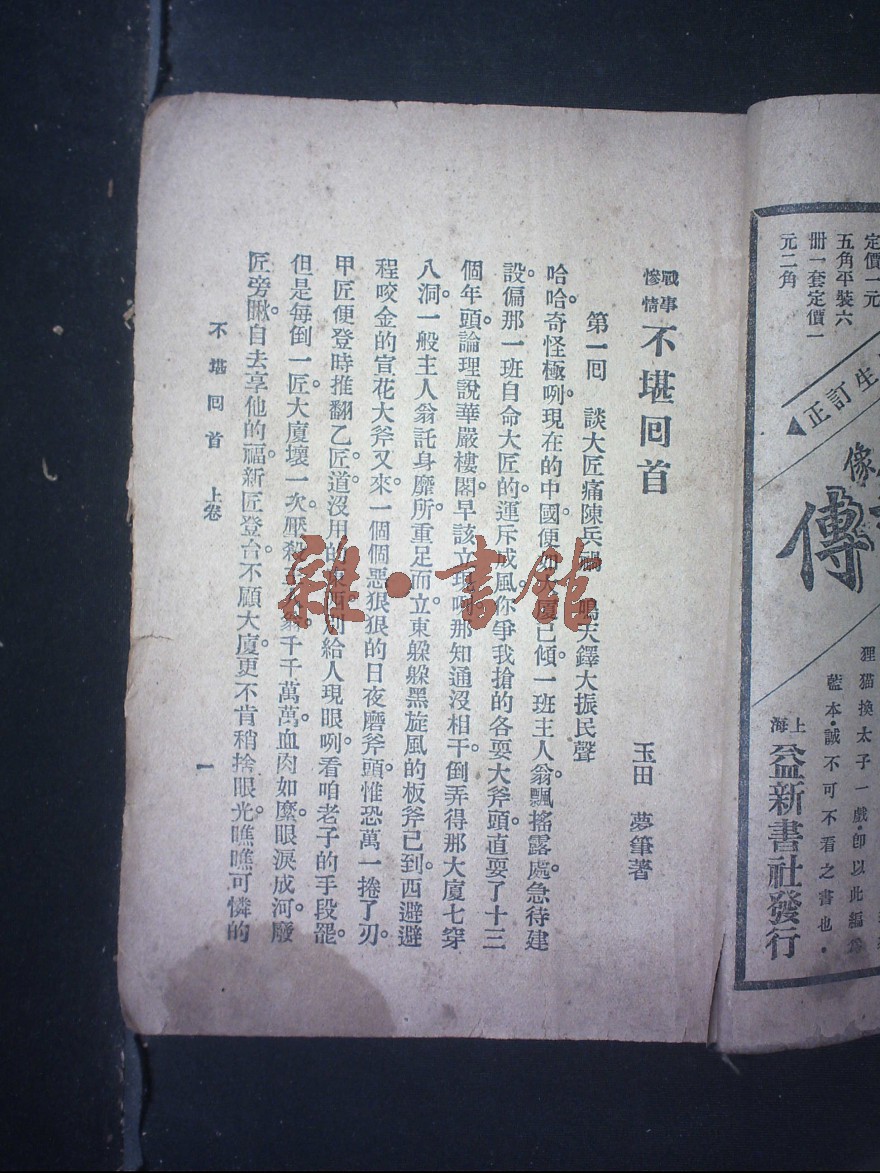 定價一元
五角平裝六
册一套定價一
元二角
生訂正
像
傳
狸猫換太子一戲•卽以此編爲
藍本•誠不可不看之書也•
上海
益新書社發行
戰事慘情 不堪回首
玉田 夢筆著
第一回 談大匠痛陳兵禍 鳴天鐸大振民聲
哈哈。奇怪極咧。現在的中國便如大廈已傾一班主人翁飄搖露處。急待建
設。偏那一班自命大匠的。運斥成風你爭我搶的各耍大斧頭。直耍了十三
個年頭。論理說華嚴樓閣。早該立現咧那知通沒相干。倒弄得那大廈七穿
八洞。一般主人翁託身靡所。重足而立。東躲躲黑旋風的板斧已到。西避避
程咬金的宣花大斧又來。一個個惡狠狠的日夜磨斧頭。惟恐萬一捲了刃。
甲匠便登時推翻乙匠。道沒用的東西別給人現眼咧。看咱老子的手段罷。
但是每倒一匠。大廈壞一次。壓殺主翁千千萬萬。血肉如麋。眼淚成河。廢
匠旁瞅。自去享他的福。新匠登台。不顧大廈。更不肯稍捨眼光瞧瞧可憐的
不堪回首 上卷
一
雜•書館